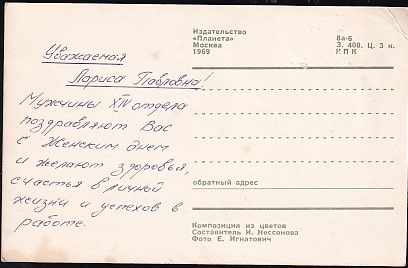 Уважаемая
Лариса Павловна!
Мужчины XIV отдела
поздравляют Вас
с Женским днем
и желают здоровья,
счастья в личной
жизни и успехов в
работе.
Издательство
«Планета»
Москва
1969
8а-6
З. 400. Ц. 3 к.
КПК
обратный адрес
Композиция из цветов
Составитель И. Нессонова
Фото Е. Игнатович